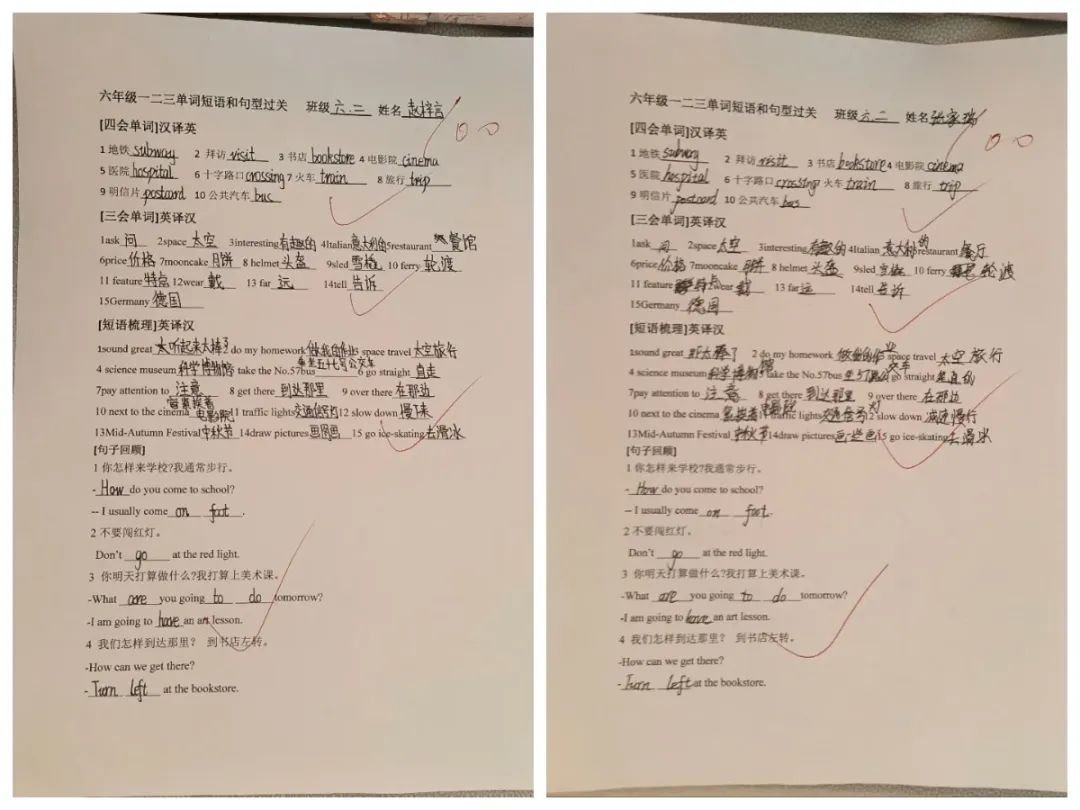 六年级一二三单词短语和句型过关 班级六.三 姓名赵梓言
100
[四会单词]汉译英
1 地铁subway 2 拜访visit 3 书店bookstore 4 电影院cinema
5 医院hospital 6 十字路口crossing 7 火车train 8 旅行trip
9 明信片postcard 10 公共汽车bus
[三会单词]英译汉
1ask 问 2space太空 3interesting有趣的 4Italian意大利的 5restaurant餐馆
6price价格 7mooncake月饼 8 helmet头盔 9sled雪橇 10 ferry轮渡
11 feature特点 12wear戴 13 far远 14tell告诉
15Germany德国
[短语梳理]英译汉
1sound great听起来太棒了 2 do my homework做我的作业 3 space travel太空旅行
4 science museum科学博物馆 5 take the No.57bus乘坐五十七号公交车 6 go straight直走
7pay attention to注意 8 get there到达那里 9 over there在那边
10 next to the cinema紧挨着电影院 11 traffic lights交通信号灯 12 slow down慢下来
13Mid-Autumn Festival中秋节 14draw pictures画图画 15 go ice-skating去滑冰
[句子回顾]
1 你怎样来学校?我通常步行。
-How do you come to school?
-- I usually come on foot.
2 不要闯红灯。
Don't go at the red light.
3 你明天打算做什么?我打算上美术课。
-What are you going to do tomorrow?
-I am going to have an art lesson.
4 我们怎样到达那里? 到书店左转。
-How can we get there?
-Turn left at the bookstore.
六年级一二三单词短语和句型过关 班级六.二 姓名张家瑞
100
[四会单词]汉译英
1 地铁subway 2 拜访visit 3 书店bookstore 4 电影院cinema
5 医院hospital 6 十字路口crossing 7 火车train 8 旅行trip
9 明信片postcard 10 公共汽车bus
[三会单词]英译汉
1ask 问 2space太空 3interesting有趣的 4Italian意大利的 5restaurant餐厅
6price价格 7mooncake月饼 8 helmet头盔 9sled 10 ferry轮渡
11 feature特点 12wear戴 13 far远 14tell告诉
15Germany德国
[短语梳理]英译汉
1sound great听太棒了 2 do my homework做我的作业 3 space travel太空旅行
4 science museum科学博物馆 5 take the No.57bus坐57路公交车 6 go straight
7pay attention to注意 8 get there到达那里 9 over there在那边
10 next to the cinema紧挨着电影院 11 traffic lights交通信号灯 12 slow down减速慢行
13Mid-Autumn Festival中秋节 14draw pictures画些画 15 go ice-skating去滑冰
[句子回顾]
1 你怎样来学校?我通常步行。
-How do you come to school?
-- I usually come on foot.
2 不要闯红灯。
Don't go at the red light.
3 你明天打算做什么?我打算上美术课。
-What are you going to do tomorrow?
-I am going to have an art lesson.
4 我们怎样到达那里? 到书店左转。
-How can we get there?
-Turn left at the bookstore.